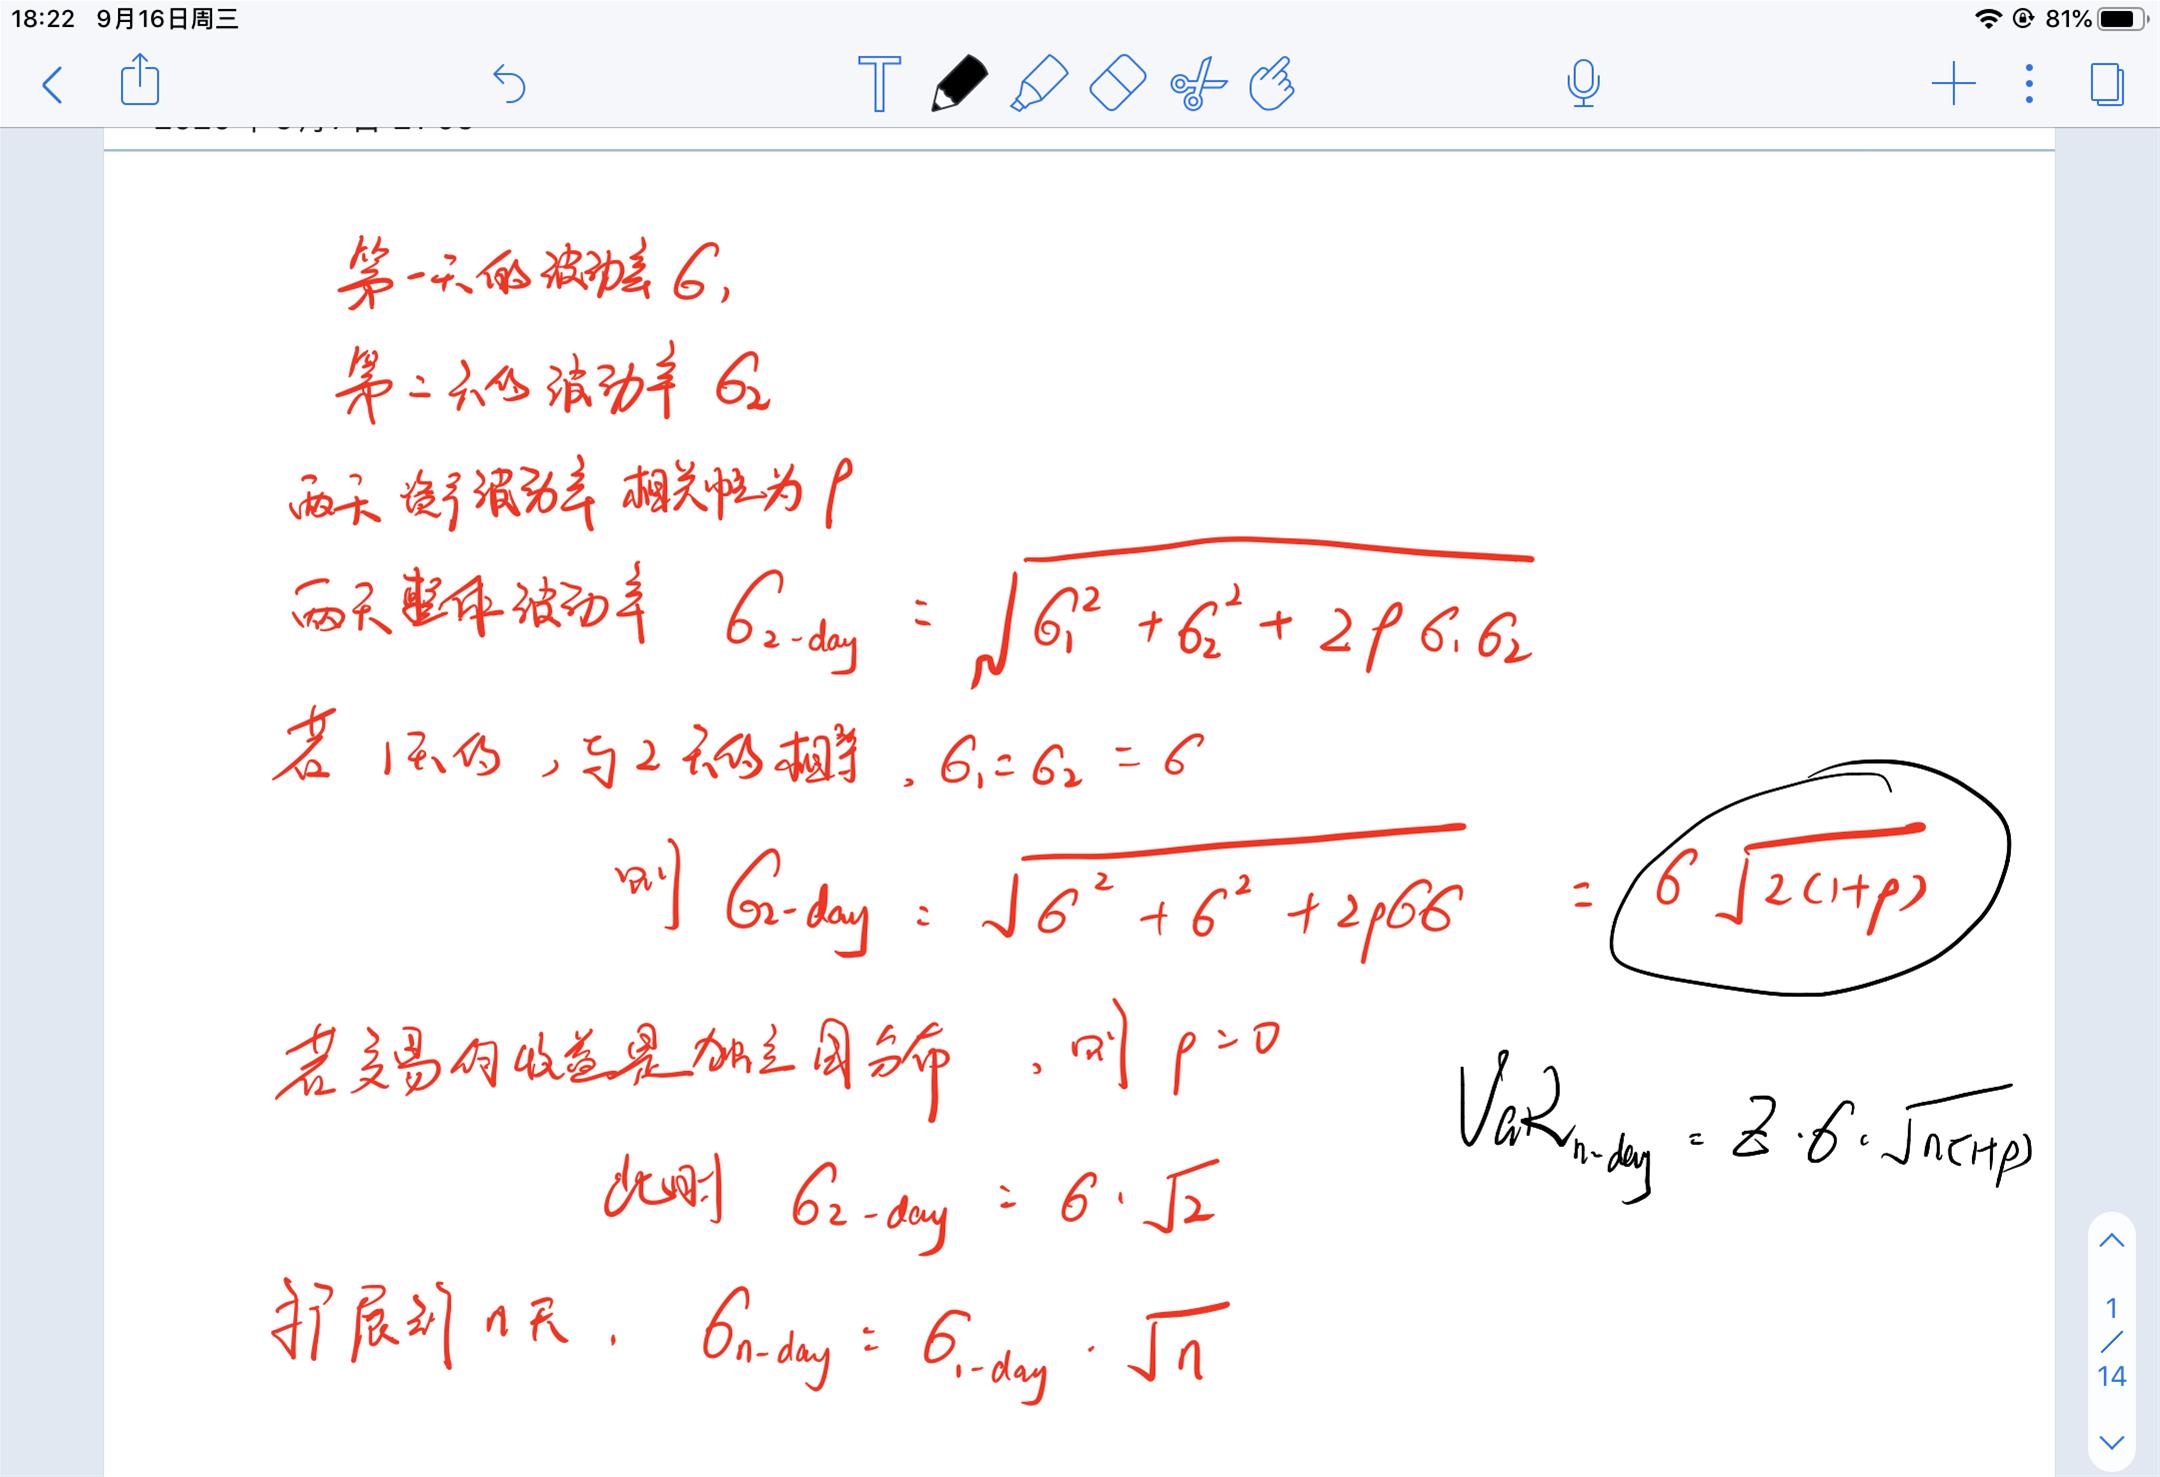 18:22 9月16日周三
81%
第一天的波动率 σ₁
第二天的波动率 σ₂
两天资产波动率相关性为 ρ
两天整体波动率 σ₂₋day = √(σ₁² + σ₂² + 2ρσ₁σ₂)
若1天的,与2天的相等,σ₁=σ₂=σ
则 σ₂₋day = √(σ² + σ² + 2ρσσ) = σ√(2(1+ρ))
若交易的收益是独立同分布,则 ρ=0
VaRn-day = Z·σ·√(n(1+ρ))
此时 σ₂₋day = σ·√2
扩展到n天, σn-day = σ₁₋day·√n
1
/
14